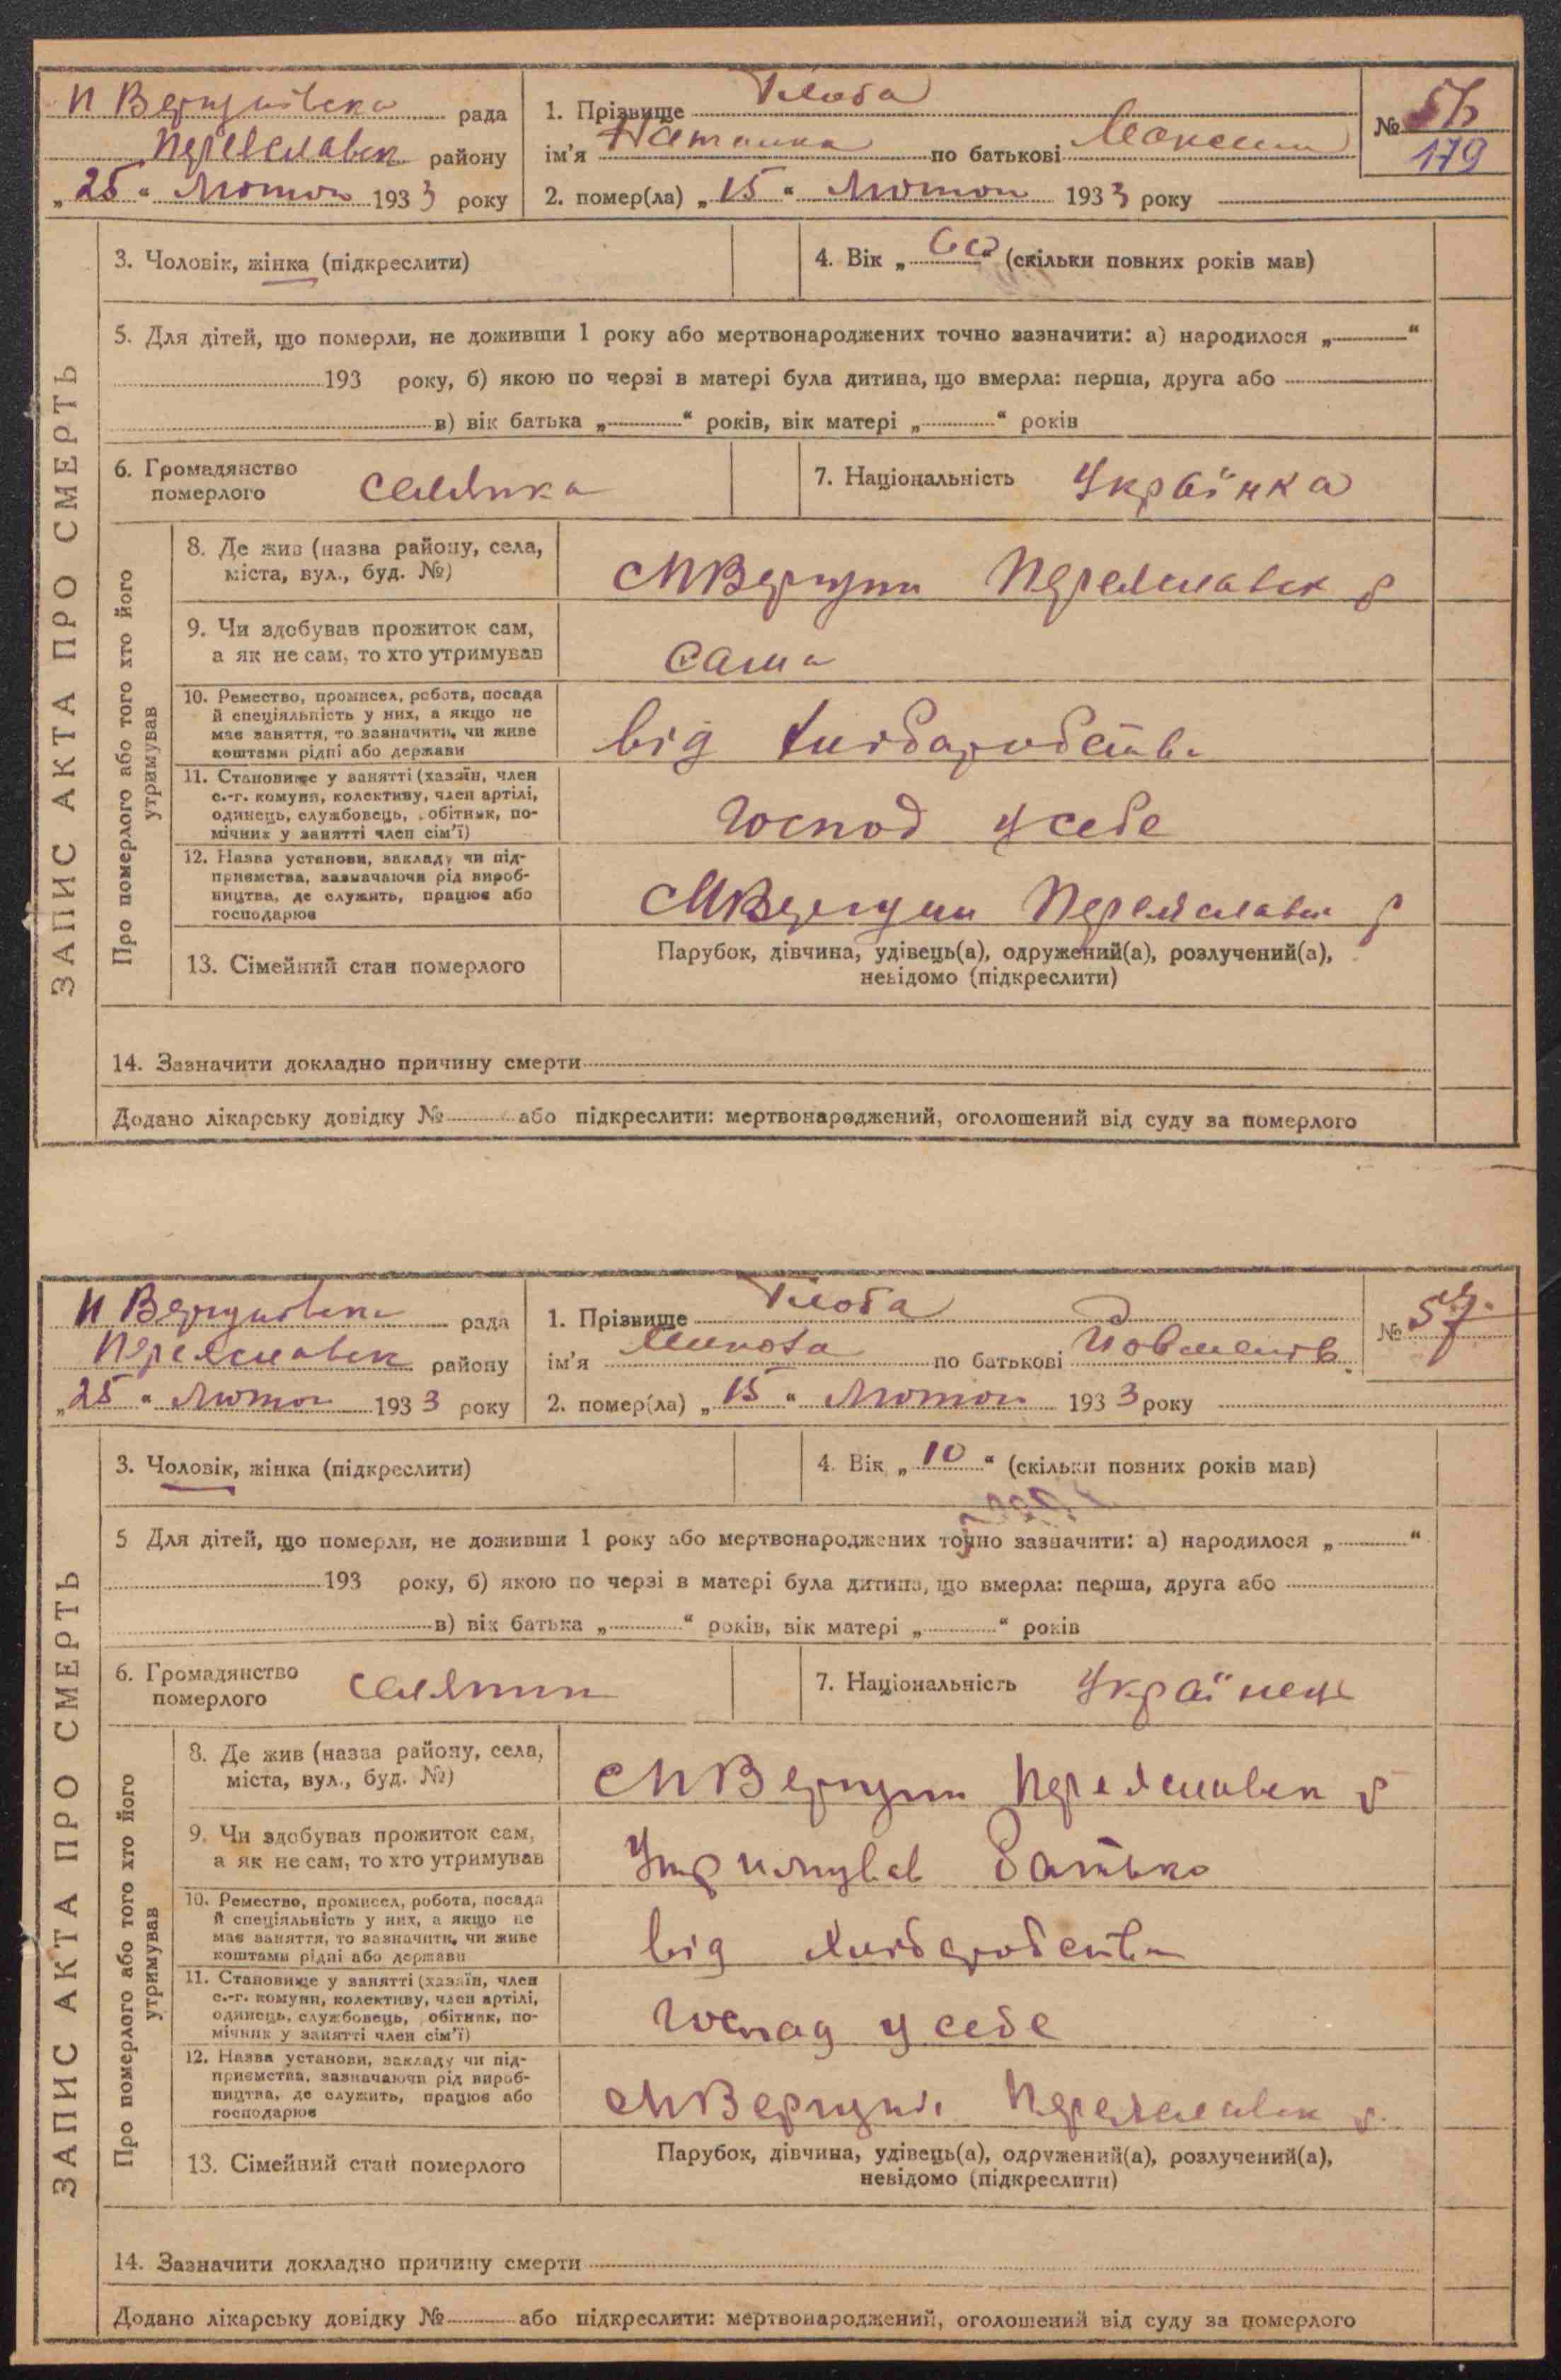 И Вергунівска рада
Переяславск району
„25“ Лютого 1933 року
1. Прізвище Глоба
ім'я Наталка по батькові Максим
2. помер(ла) „15“ Лютого 1933 року
№ 56
179
ЗАПИС АКТА ПРО СМЕРТЬ
3. Чоловік, жінка (підкреслити)
4. Вік „60“ (скільки повних років мав)
5. Для дітей, що померли, не доживши 1 року або мертвонароджених точно зазначити: а) народилося „ “
193 року, б) якою по черзі в матері була дитина, що вмерла: перша, друга або
в) вік батька „ “ років, вік матері „ “ років
6. Громадянство
померлого
селянка
7. Національність Українка
Про померлого або того хто його
утримував
8. Де жив (назва району, села,
міста, вул., буд. №)
Переяславск р
9. Чи здобував прожиток сам,
а як не сам, то хто утримував
сама
10. Ремество, промисел, робота, посада
й спеціяльність у них, а якщо не
має заняття, то зазначити, чи живе
коштами рідні або держави
від хліборобства
11. Становище у занятті (хазяїн, член
с.-г. комуни, колективу, член артілі,
одинець, службовець, обітник, по-
мічник у занятті член сім'ї)
Господ у себе
12. Назва установи, закладу чи під-
приємства, зазначаючи рід вироб-
ництва, де служить, працює або
господарює
Переяславск р
13. Сімейний стан померлого
Парубок, дівчина, удівець(а), одружений(а), розлучений(а),
невідомо (підкреслити)
14. Зазначити докладно причину смерти
Додано лікарську довідку № або підкреслити: мертвонароджений, оголошений від суду за померлого
И Вергунівска рада
Переяславск району
„25“ Лютого 1933 року
1. Прізвище Глоба
ім'я Микола по батькові
2. помер(ла) „15“ Лютого 1933 року
№ 57
ЗАПИС АКТА ПРО СМЕРТЬ
3. Чоловік, жінка (підкреслити)
4. Вік „10“ (скільки повних років мав)
5 Для дітей, що померли, не доживши 1 року або мертвонароджених точно зазначити: а) народилося „ “
193 року, б) якою по черзі в матері була дитина, що вмерла: перша, друга або
в) вік батька „ “ років, вік матері „ “ років
6. Громадянство
померлого
селянин
7. Національність Українець
Про померлого або того хто його
утримував
8. Де жив (назва району, села,
міста, вул., буд. №)
Переяславск р
9. Чи здобував прожиток сам,
а як не сам, то хто утримував
Утримував батько
10. Ремество, промисел, робота, посада
й спеціяльність у них, а якщо не
має заняття, то зазначити, чи живе
коштами рідні або держави
від хліборобства
11. Становище у занятті (хазяїн, член
с.-г. комуни, колективу, член артілі,
одинець, службовець, обітник, по-
мічник у занятті член сім'ї)
Господ у себе
12. Назва установи, закладу чи під-
приємства, зазначаючи рід вироб-
ництва, де служить, працює або
господарює
Переяславск р.
13. Сімейний стан померлого
Парубок, дівчина, удівець(а), одружений(а), розлучений(а),
невідомо (підкреслити)
14. Зазначити докладно причину смерти
Додано лікарську довідку № або підкреслити: мертвонароджений, оголошений від суду за померлого